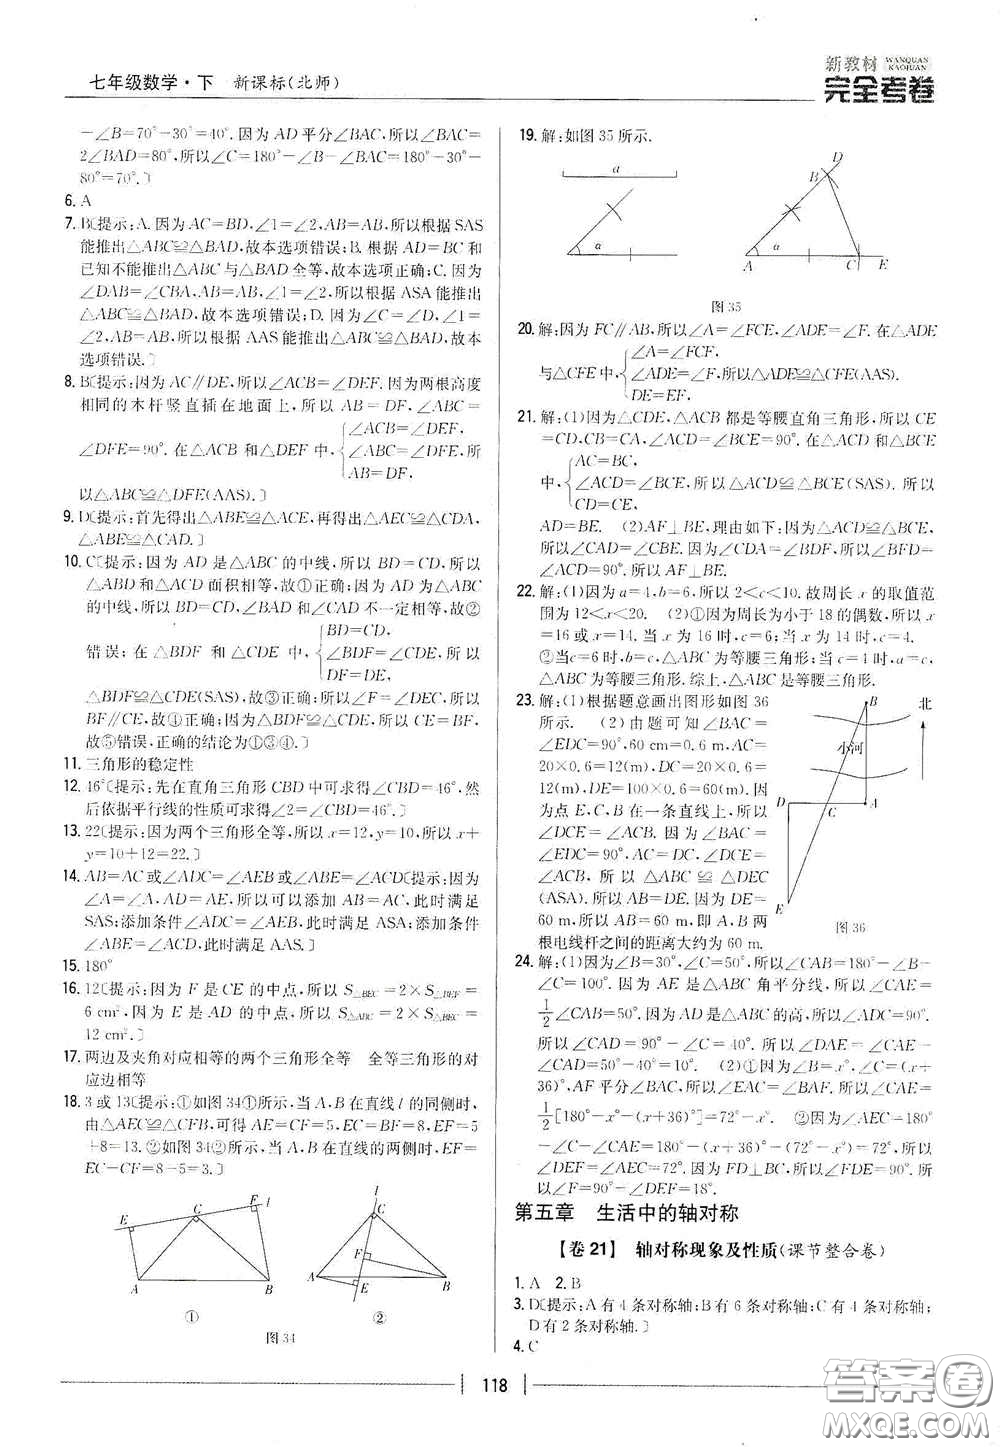 七年级数学·下 新课标(北师)
新教材 WANQUAN KAOJUAN
完全考卷
-∠B=70°-30°=40°.因为AD平分∠BAC,所以∠BAC=
2∠BAD=80°,所以∠C=180°-∠B-∠BAC=180°-30°-
80°=70°.〕
6. A
7. B〔提示:A.因为AC=BD,∠1=∠2,AB=AB,所以根据SAS
能推出△ABC≌△BAD,故本选项错误;B.根据AD=BC和
已知不能推出△ABC与△BAD全等,故本选项正确;C.因为
∠DAB=∠CBA,AB=AB,∠1=∠2,所以根据ASA能推出
△ABC≌△BAD,故本选项错误;D.因为∠C=∠D,∠1=∠
2,AB=AB,所以根据AAS能推出△ABC≌△BAD,故本
选项错误.〕
8. B〔提示:因为AC∥DE,所以∠ACB=∠DEF.因为两根高度
相同的木杆竖直插在地面上,所以AB=DF,∠ABC=
∠DFE=90°.在△ACB和△DEF中,{∠ACB=∠DEF,
∠ABC=∠DFE,所
AB=DF,
以△ABC≌△DFE(AAS).〕
9. D〔提示:首先得出△ABE≌△ACE,再得出△AEC≌△CDA,
△ABE≌△CAD.〕
10. C〔提示:因为AD是△ABC的中线,所以BD=CD,所以
△ABD和△ACD面积相等,故①正确;因为AD为△ABC
的中线,所以BD=CD,∠BAD和∠CAD不一定相等,故②
错误;在△BDF和△CDE中,{BD=CD,
∠BDF=∠CDE,所以
DF=DE,
△BDF≌△CDE(SAS),故③正确;所以∠F=∠DEC,所以
BF∥CE,故④正确;因为△BDF≌△CDE,所以CE=BF,
故⑤错误,正确的结论为①③④.〕
11. 三角形的稳定性
12. 46°〔提示:先在直角三角形CBD中可求得∠CBD=46°,然
后依据平行线的性质可求得∠2=∠CBD=46°.〕
13. 22〔提示:因为两个三角形全等,所以x=12,y=10,所以x+
y=10+12=22.〕
14. AB=AC或∠ADC=∠AEB或∠ABE=∠ACD〔提示:因为
∠A=∠A,AD=AE,所以可以添加AB=AC,此时满足
SAS;添加条件∠ADC=∠AEB,此时满足ASA;添加条件
∠ABE=∠ACD,此时满足AAS.〕
15. 180°
16. 12〔提示:因为F是CE的中点,所以S△BEC=2×S△BEF=
6 cm²,因为E是AD的中点,所以S△ABC=2×S△BEC=
12 cm².〕
17. 两边及夹角对应相等的两个三角形全等 全等三角形的对
应边相等
18. 3或13〔提示:①如图34①所示,当A,B在直线l的同侧时,
由△AEC≌△CFB,可得AE=CF=5,EC=BF=8,EF=5
+8=13.②如图34②所示,当A,B在直线的两侧时,EF=
EC-CF=8-5=3.〕
E C F l
A B
①
l C
F
A E B
②
图34
19. 解:如图35所示.
a
α
D
B
α
A C E
图35
20. 解:因为FC∥AB,所以∠A=∠FCE,∠ADE=∠F.在△ADE
与△CFE中,{∠A=∠FCF,
∠ADE=∠F,所以△ADE≌△CFE(AAS).
DE=EF,
21. 解:(1)因为△CDE,△ACB都是等腰直角三角形,所以CE
=CD,CB=CA,∠ACD=∠BCE=90°.在△ACD和△BCE
中,{AC=BC,
∠ACD=∠BCE,所以△ACD≌△BCE(SAS).所以
CD=CE,
AD=BE. (2)AF⊥BE,理由如下:因为△ACD≌△BCE,
所以∠CAD=∠CBE.因为∠CDA=∠BDF,所以∠BFD=
∠ACD=90°.所以AF⊥BE.
22. 解:(1)因为a=4,b=6,所以2<c<10.故周长x的取值范
围为12<x<20. (2)①因为周长为小于18的偶数,所以x
=16或x=14.当x为16时,c=6;当x为14时,c=4.
②当c=6时,b=c,△ABC为等腰三角形;当c=4时,a
=c,△ABC为等腰三角形.综上,△ABC是等腰三角形.
23. 解:(1)根据题意画出图形如图36
所示. (2)由题可知∠BAC=
∠EDC=90°,60 cm=0.6 m,AC=
20×0.6=12(m),DC=20×0.6=
12(m),DE=100×0.6=60(m).因
为点E,C,B在一条直线上,所以
∠DCE=∠ACB.因为∠BAC=
∠EDC=90°,AC=DC,∠DCE=
∠ACB,所以△ABC≌△DEC
(ASA).所以AB=DE.因为DE=
60 m,所以AB=60 m,即A,B两
根电线杆之间的距离大约为60 m.
B 北
小河
D A
C
E
图36
24. 解:(1)因为∠B=30°,∠C=50°,所以∠CAB=180°-∠B-
∠C=100°.因为AE是△ABC角平分线,所以∠CAE=
1/2∠CAB=50°.因为AD是△ABC的高,所以∠ADC=90°.
所以∠CAD=90°-∠C=40°.所以∠DAE=∠CAE-
∠CAD=50°-40°=10°. (2)①因为∠B=x°,∠C=(x+
36)°,AF平分∠BAC,所以∠EAC=∠BAF.所以∠CAE=
1/2[180°-x°-(x+36)°]=72°-x°. ②因为∠AEC=180°
-∠C-∠CAE=180°-(x+36)°-(72°-x°)=72°,所以
∠DEF=∠AEC=72°.因为FD⊥BC,所以∠FDE=90°.所
以∠F=90°-∠DEF=18°.
第五章 生活中的轴对称
【卷21】 轴对称现象及性质(课节整合卷)
1. A 2. B
3. D〔提示:A有4条对称轴;B有6条对称轴;C有4条对称轴;
D有2条对称轴.〕
4. C
118
答案圈
MXQE.COM